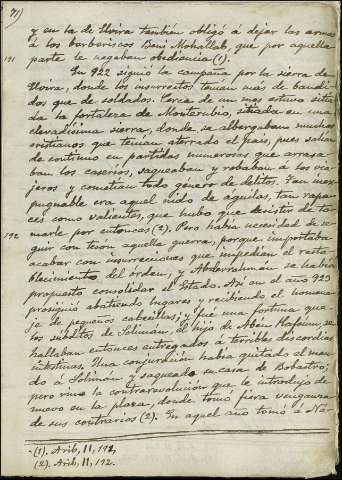 71)
y en la de Elvira también obligó á dejar las armas
á los berberiscos Beni Mohallab, que por aquella
parte le negaban obediencia (1).
191
En 922 siguió la campaña por la sierra de
Elvira, donde los insurrectos tenian más de bandi-
dos que de soldados. Cerca de un mes estuvo sitia-
da la fortaleza de Monterubio, situada en una
elevadísima sierra, donde se albergaban muchos
cristianos que tenian aterrado el pais, pues salian
de continuo en partidas numerosas que arrasa-
ban los caserios, saqueaban y robaban á los via-
jeros y cometian todo género de delitos. Tan inex-
pugnable era aquel nido de águilas, tan rapa-
ces como valientes, que hubo que desistir de to-
marle por entonces (2). Pero habia necesidad de se-
192
guir con teson aquella guerra, porque importaba
acabar con insurrecciones que impedian el resta-
blecimiento del órden, y Abderrahman se habia
propuesto consolidar el Estado. Asi en el año 923
prosiguió abatiendo lugares y recibiendo el homena-
je de pequeños cabecillas; y fué una fortuna que
los súbditos de Soliman, el hijo de Aben Hafsun, se
hallaban entonces entregados á terribles discordias
intestinas. Una conjuracion habia quitado el man-
do á Soliman y saqueado su casa de Bobastro;
pero vino la contrarevolucion que le introdujo de
nuevo en la plaza, donde tomó fiera venganza
de sus contrarios (2). En aquel año tomó á Ná-
(1). Arib, II, 191,
(2). Arib, II, 192.